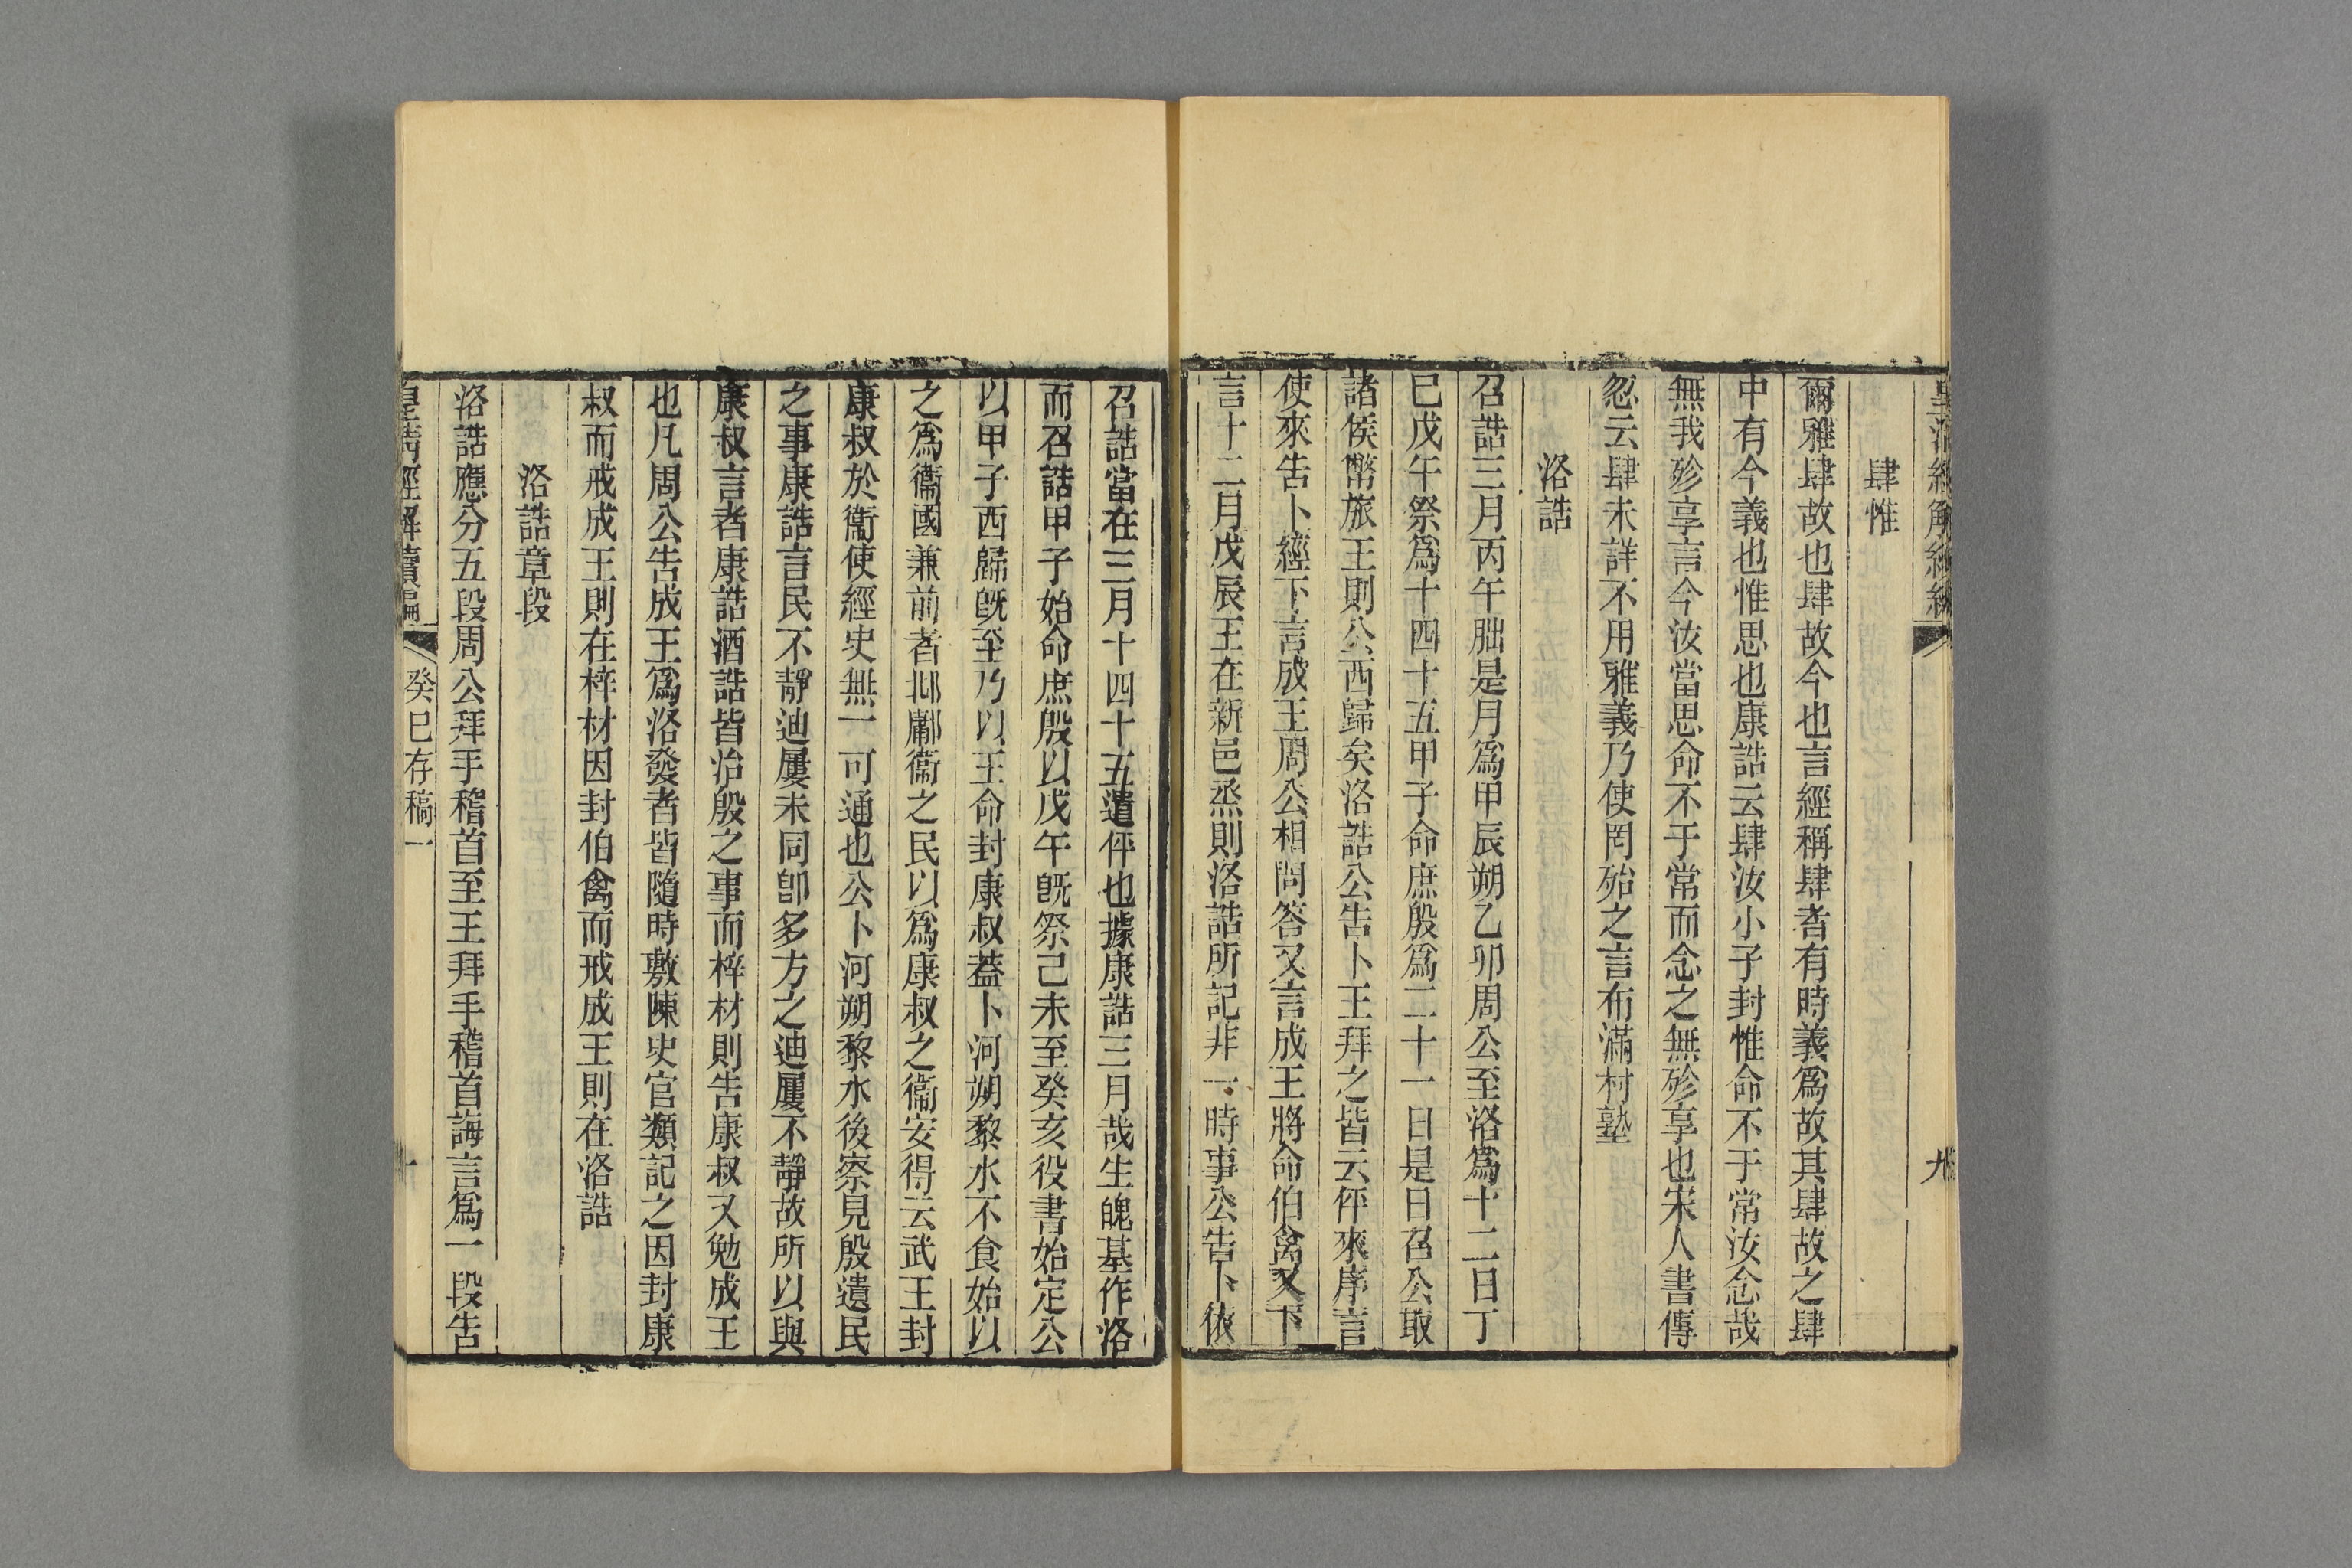 皇清經解續編
九
肆惟
爾雅肆故也肆故今也言經稱肆者有時義爲故其肆故之肆
中有今義也惟思也康誥云肆汝小子封惟命不于常汝念哉
無我殄享言今汝當思命不于常而念之無殄享也宋人書傳
忽云肆未詳不用雅義乃使罔殆之言布滿村塾
洛誥
召誥三月丙午朏是月爲甲辰朔乙卯周公至洛爲十二日丁
巳戊午祭爲十四十五甲子命庶殷爲二十一日是日召公取
諸侯幣旅王則公西歸矣洛誥公告卜王拜之皆云伻來序言
使來告卜經下言成王周公相問答又言成王將命伯禽又下
言十二月戊辰王在新邑烝則洛誥所記非一時事公告卜依
召誥當在三月十四十五遣伻也據康誥三月哉生魄基作洛
而召誥甲子始命庶殷以戊午旣祭己未至癸亥役書始定公
以甲子西歸旣至乃以王命封康叔葢卜河朔黎水不食始以
之爲衞國兼前者邶鄘衞之民以爲康叔之衞安得云武王封
康叔於衞使經史無一可通也公卜河朔黎水後察見殷遺民
之事康誥言民不靜迪屢未同卽多方之迪屢不靜故所以與
康叔言者康誥酒誥皆治殷之事而梓材則告康叔又勉成王
也凡周公告成王爲洛發者皆隨時敷陳史官類記之因封康
叔而戒成王則在梓材因封伯禽而戒成王則在洛誥
洛誥章段
洛誥應分五段周公拜手稽首至王拜手稽首誨言爲一段告
皇清經解續編
癸巳存稿一
十